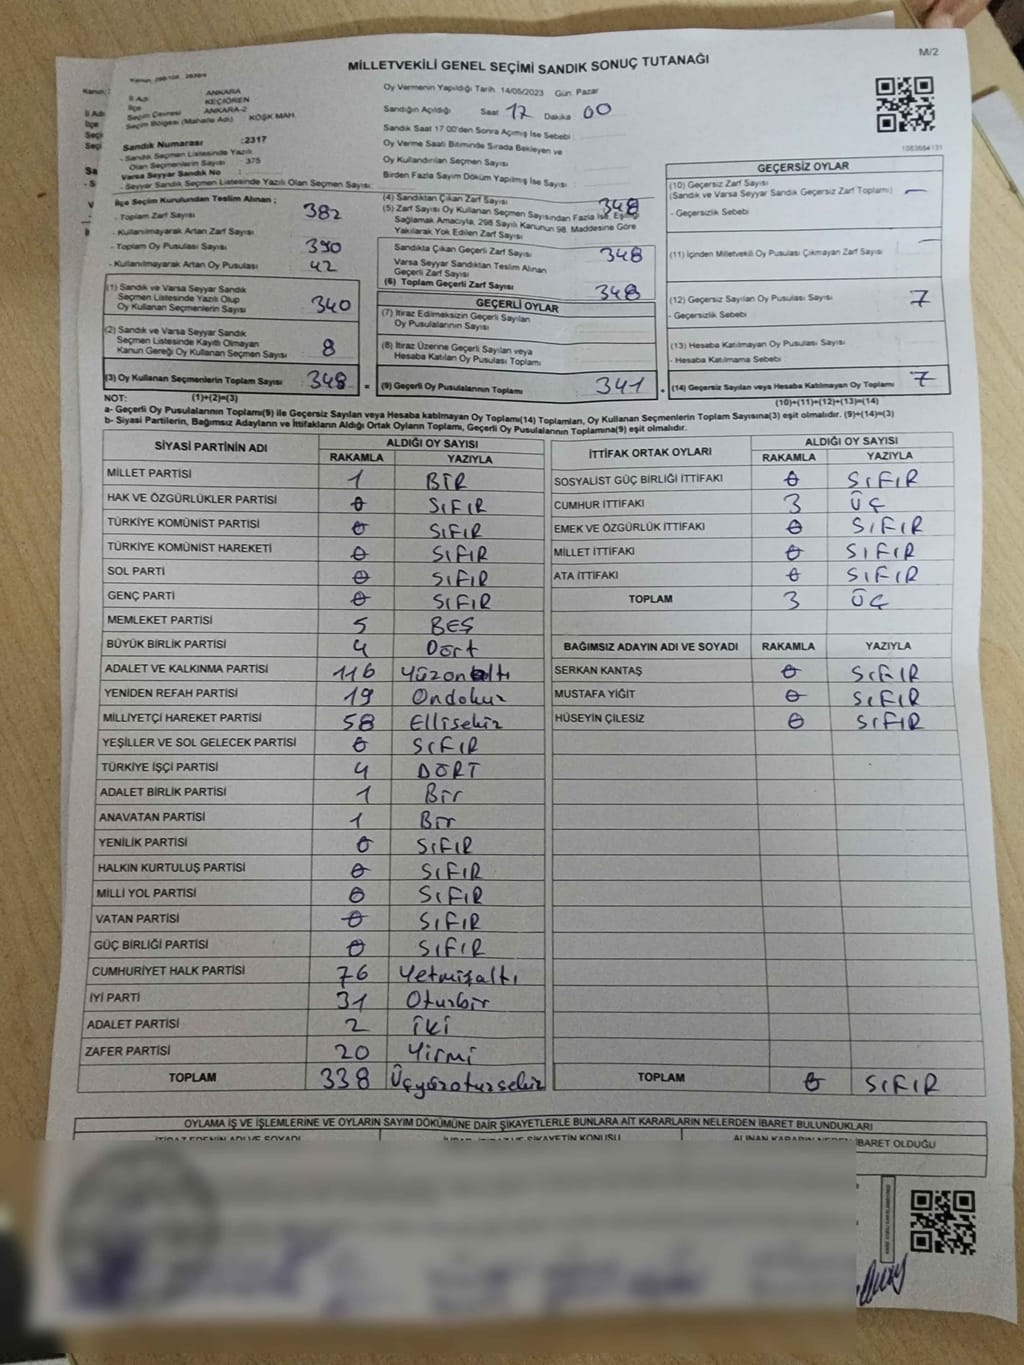 M/2
MİLLETVEKİLİ GENEL SEÇİMİ SANDIK SONUÇ TUTANAĞI
İl Adı : ANKARA
İlçe : KEÇİÖREN
Seçim Çevresi : ANKARA-2
Seçim Bölgesi (Mahalle Adı) : KÖŞK MAH.
Sandık Numarası : 2317
- Sandık Seçmen Listesinde Yazılı
Olan Seçmenlerin Sayısı : 375
Varsa Seyyar Sandık No :
- Seyyar Sandık Seçmen Listesinde Yazılı Olan Seçmen Sayısı:
Oy Vermenin Yapıldığı Tarih 14/05/2023 Gün: Pazar
Sandığın Açıldığı Saat 17 Dakika 00
Sandık Saat 17:00'den Sonra Açımış İse Sebebi :
Oy Verme Saati Bitiminde Sırada Bekleyen ve
Oy Kullandırılan Seçmen Sayısı :
Birden Fazla Sayım Döküm Yapılmış İse Sayısı :
1083664131
İlçe Seçim Kurulundan Teslim Alınan ;
- Toplam Zarf Sayısı : 382
- Kullanılmayarak Artan Zarf Sayısı :
- Toplam Oy Pusulası Sayısı : 390
- Kullanılmayarak Artan Oy Pusulası : 42
(1) Sandık ve Varsa Seyyar Sandık
Seçmen Listesinde Yazılı Olup
Oy Kullanan Seçmenlerin Sayısı : 340
(2) Sandık ve Varsa Seyyar Sandık
Seçmen Listesinde Kayıtlı Olmayan
Kanun Gereği Oy Kullanan Seçmen Sayısı : 8
(3) Oy Kullanan Seçmenlerin Toplam Sayısı : 348 =
(4) Sandıktan Çıkan Zarf Sayısı : 348
(5) Zarf Sayısı Oy Kullanan Seçmen Sayısından Fazla İse, Eşitliği
Sağlamak Amacıyla, 298 Sayılı Kanunun 98. Maddesine Göre
Yakılarak Yok Edilen Zarf Sayısı
Sandıkta Çıkan Geçerli Zarf Sayısı : 348
Varsa Seyyar Sandıktan Teslim Alınan
Geçerli Zarf Sayısı
(6) Toplam Geçerli Zarf Sayısı : 348
GEÇERLİ OYLAR
(7) İtiraz Edilmeksizin Geçerli Sayılan
Oy Pusulalarının Sayısı :
(8) İtiraz Üzerine Geçerli Sayılan veya
Hesaba Katılan Oy Pusulası Toplamı :
(9) Geçerli Oy Pusulalarının Toplamı : 341 +
GEÇERSİZ OYLAR
(10) Geçersiz Zarf Sayısı
(Sandık ve Varsa Seyyar Sandık Geçersiz Zarf Toplamı) : —
- Geçersizlik Sebebi :
(11) İçinden Milletvekili Oy Pusulası Çıkmayan Zarf Sayısı : —
(12) Geçersiz Sayılan Oy Pusulası Sayısı : 7
- Geçersizlik Sebebi :
(13) Hesaba Katılmayan Oy Pusulası Sayısı :
- Hesaba Katılmama Sebebi :
(14) Geçersiz Sayılan veya Hesaba Katılmayan Oy Pusulası Toplamı : 7
NOT: (1)+(2)=(3) (10)+(11)+(12)+(13)=(14)
a- Geçerli Oy Pusulalarının Toplamı(9) ile Geçersiz Sayılan veya Hesaba katılmayan Oy Toplamı(14) Toplamları, Oy Kullanan Seçmenlerin Toplam Sayısına(3) eşit olmalıdır. (9)+(14)=(3)
b- Siyasi Partilerin, Bağımsız Adayların ve İttifakların Aldığı Ortak Oyların Toplamı, Geçerli Oy Pusulalarının Toplamına(9) eşit olmalıdır.
SİYASİ PARTİNİN ADI ALDIĞI OY SAYISI
RAKAMLA YAZIYLA
MİLLET PARTİSİ 1 BİR
HAK VE ÖZGÜRLÜKLER PARTİSİ 0 SIFIR
TÜRKİYE KOMÜNİST PARTİSİ 0 SIFIR
TÜRKİYE KOMÜNİST HAREKETİ 0 SIFIR
SOL PARTİ 0 SIFIR
GENÇ PARTİ 0 SIFIR
MEMLEKET PARTİSİ 5 BEŞ
BÜYÜK BİRLİK PARTİSİ 4 Dört
ADALET VE KALKINMA PARTİSİ 116 Yüzonaltı
YENİDEN REFAH PARTİSİ 19 Ondokuz
MİLLİYETÇİ HAREKET PARTİSİ 58 Ellisekiz
YEŞİLLER VE SOL GELECEK PARTİSİ 0 SIFIR
TÜRKİYE İŞÇİ PARTİSİ 4 DÖRT
ADALET BİRLİK PARTİSİ 1 Bir
ANAVATAN PARTİSİ 1 Bir
YENİLİK PARTİSİ 0 SIFIR
HALKIN KURTULUŞ PARTİSİ 0 SIFIR
MİLLİ YOL PARTİSİ 0 SIFIR
VATAN PARTİSİ 0 SIFIR
GÜÇ BİRLİĞİ PARTİSİ 0 SIFIR
CUMHURİYET HALK PARTİSİ 76 Yetmişaltı
İYİ PARTİ 31 Otuzbir
ADALET PARTİSİ 2 İki
ZAFER PARTİSİ 20 Yirmi
TOPLAM 338 Üçyüzotuzsekiz
İTTİFAK ORTAK OYLARI ALDIĞI OY SAYISI
RAKAMLA YAZIYLA
SOSYALİST GÜÇ BİRLİĞİ İTTİFAKI 0 SIFIR
CUMHUR İTTİFAKI 3 ÜÇ
EMEK VE ÖZGÜRLÜK İTTİFAKI 0 SIFIR
MİLLET İTTİFAKI 0 SIFIR
ATA İTTİFAKI 0 SIFIR
TOPLAM 3 ÜÇ
BAĞIMSIZ ADAYIN ADI VE SOYADI RAKAMLA YAZIYLA
SERKAN KANTAŞ 0 SIFIR
MUSTAFA YİĞİT 0 SIFIR
HÜSEYİN ÇİLESİZ 0 SIFIR
TOPLAM 0 SIFIR
OYLAMA İŞ VE İŞLEMLERİNE VE OYLARIN SAYIM DÖKÜMÜNE DAİR ŞİKAYETLERLE BUNLARA AİT KARARLARIN NELERDEN İBARET BULUNDUKLARI
İTİRAZ EDENİN ADI VE SOYADI ŞİKAYETİN KONUSU ALINAN KARARIN NEDEN İBARET OLDUĞU